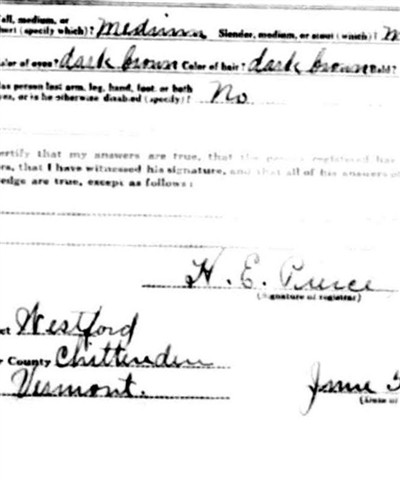 all, medium, or
short (specify which)? medium Slender, medium, or stout (which)?
color of eyes? dark brown Color of hair? dark brown Bald?
Has person lost arm, leg, hand, foot, or both
eyes, or is he otherwise disabled (specify)? No
ertify that my answers are true, that the person registered has
rs, that I have witnessed his signature, and that all of his answers of
edge are true, except as follows:
H. E. Pierce
(Signature of registrar)
ct Westford
r County Chittenden
Vermont.
June
(Date of